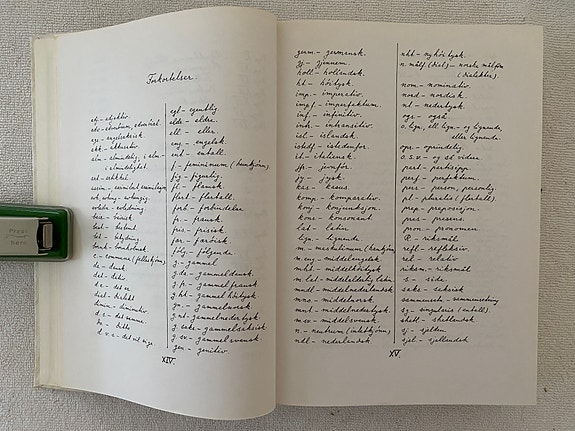 Forkortelser.
adj - adjektiv.
adv - adverbium, adverbiel.
ags - angelsaksisk
akk - akkusativ
alm - almindelig, i alm -
i almindelighet.
art - artikkel.
assim - assimilert, assimilasjon
avh, avheng - avhengig.
avledn - avledning.
bair - bairisk
best - bestemt
bet - betydning
bornh - bornholmsk.
c - commune (felleskjønn)
da - dansk
dat - dativ
d.e - det er
dial - dialekt
dimin - diminutiv
d.s - det samme.
do - ditto
d.v.s - det vil si
egl - egentlig.
eldr - eldre.
ell - eller
eng - engelsk.
ent - entall
f - femininum (hunkjønn)
fig - figurlig.
fl - flamsk
flert - flertall.
forb - forbindelse
fr - fransk
fris - frisisk
fær - færøisk
følg - følgende
g - gammel
g.da - gammeldansk
g.fr - gammelfransk
g.ht - gammelhøitysk.
gno - gammelnorsk
g.nt - gammelnedertysk.
g.saks - gammelsaksisk
g.sv - gammelsvensk.
gen - genitiv
XIV.
germ - germansk.
gj - gjennem.
holl - hollandsk.
ht - høitysk
imp - imperativ.
impf - imperfektum.
inf - infinitiv
intr - intransitiv
isl - islandsk.
istedf - istedenfor.
it - italiensk
jfr - jevnfør.
jy - jysk.
kas - kasus.
komp - komparativ.
konj - konjunksjon
kons - konsonant
lat - latin
lign - lignende
m - maskulinum (hankjønn)
m.eng - middelengelsk
mht - middelhøitysk
m.lat - middelalderlig latin
mndl - middelnederlandsk
mno - middelnorsk
mnt - middelnedertysk.
msv - middelsvensk
n - neutrum (intetkjønn)
ndl - nederlandsk.
nht - nyhøitysk.
n. målf. (dial) - norske målføre
(dialekter)
nom - nominativ.
nord - nordisk
nt - nedertysk.
ogs - også
o.lign, ell. lign - og lignende,
eller lignende.
opr - oprindelig
o.s.v. - og så videre.
part - partisipp
perf - perfektum.
pers - person, personlig
pl - pluralis (flertall)
prep - preposisjon.
pres - presens
pron - pronomen.
R - riksmål
refl - refleksiv.
rel - relativ
riksm - riksmål
s - side.
saks - saksisk
sammensetn - sammensetning
sg - singularis (entall)
shetl - shetlandsk
sj - sjelden
sjæl - sjællandsk
XV.
Press
here